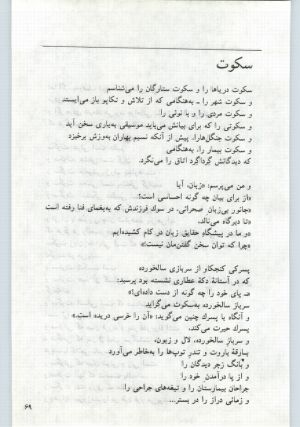 سکوت
سکوت دریاها را و سکوت ستارگان را می‌شناسم
و سکوت شهر را ـ به‌هنگامی که از تلاش و تکاپو باز می‌ایستد
و سکوت مردی را و با نوئی را
و سکوتی را که برای بیانش می‌باید موسیقی به‌یاری سخن آید
و سکوت جنگل‌هارا، پیش از آنکه نسیم بهاران به‌وزش برخیزد
و سکوت بیمار را، به‌هنگامی
که دیدگانش گرداگرد اتاق را می‌نگرد.
و من می‌پرسم: «زبان، آیا
«از برای بیان چه گونه احساسی است؟»
«جانور بی‌زبان صحرائی، در سوک فرزندش که به‌یغمای فنا رفته است
«تا دیرگاه می‌نالد.
«و ما در پیشگاه حقایق زبان در کام کشیده‌ایم
«چرا که توان سخن گفتن‌مان نیست!»
پسرکی کنجکاو از سربازی سالخورده
که در آستانهٔ دکهٔ عطاری نشسته بود پرسید:
«ـ پای خود را چه گونه از دست داده‌ای؟»
سرباز سالخورده به‌سکوت می‌گراید
و آنگاه با پسرك چنین می‌گوید: «آن را خرسی دریده است.»
پسرك حیرت می‌کند.
و سرباز سالخورده، لال و زبون،
بارقهٔ باروت و تندر توپ‌ها را به‌خاطر می‌آورد
و بانگ زجر دیدگان را
و از پا درآمدن خود را
جراحان بیمارستان را و تیغه‌های جراحی را
و زمانی دراز را در بستر...
۶۹